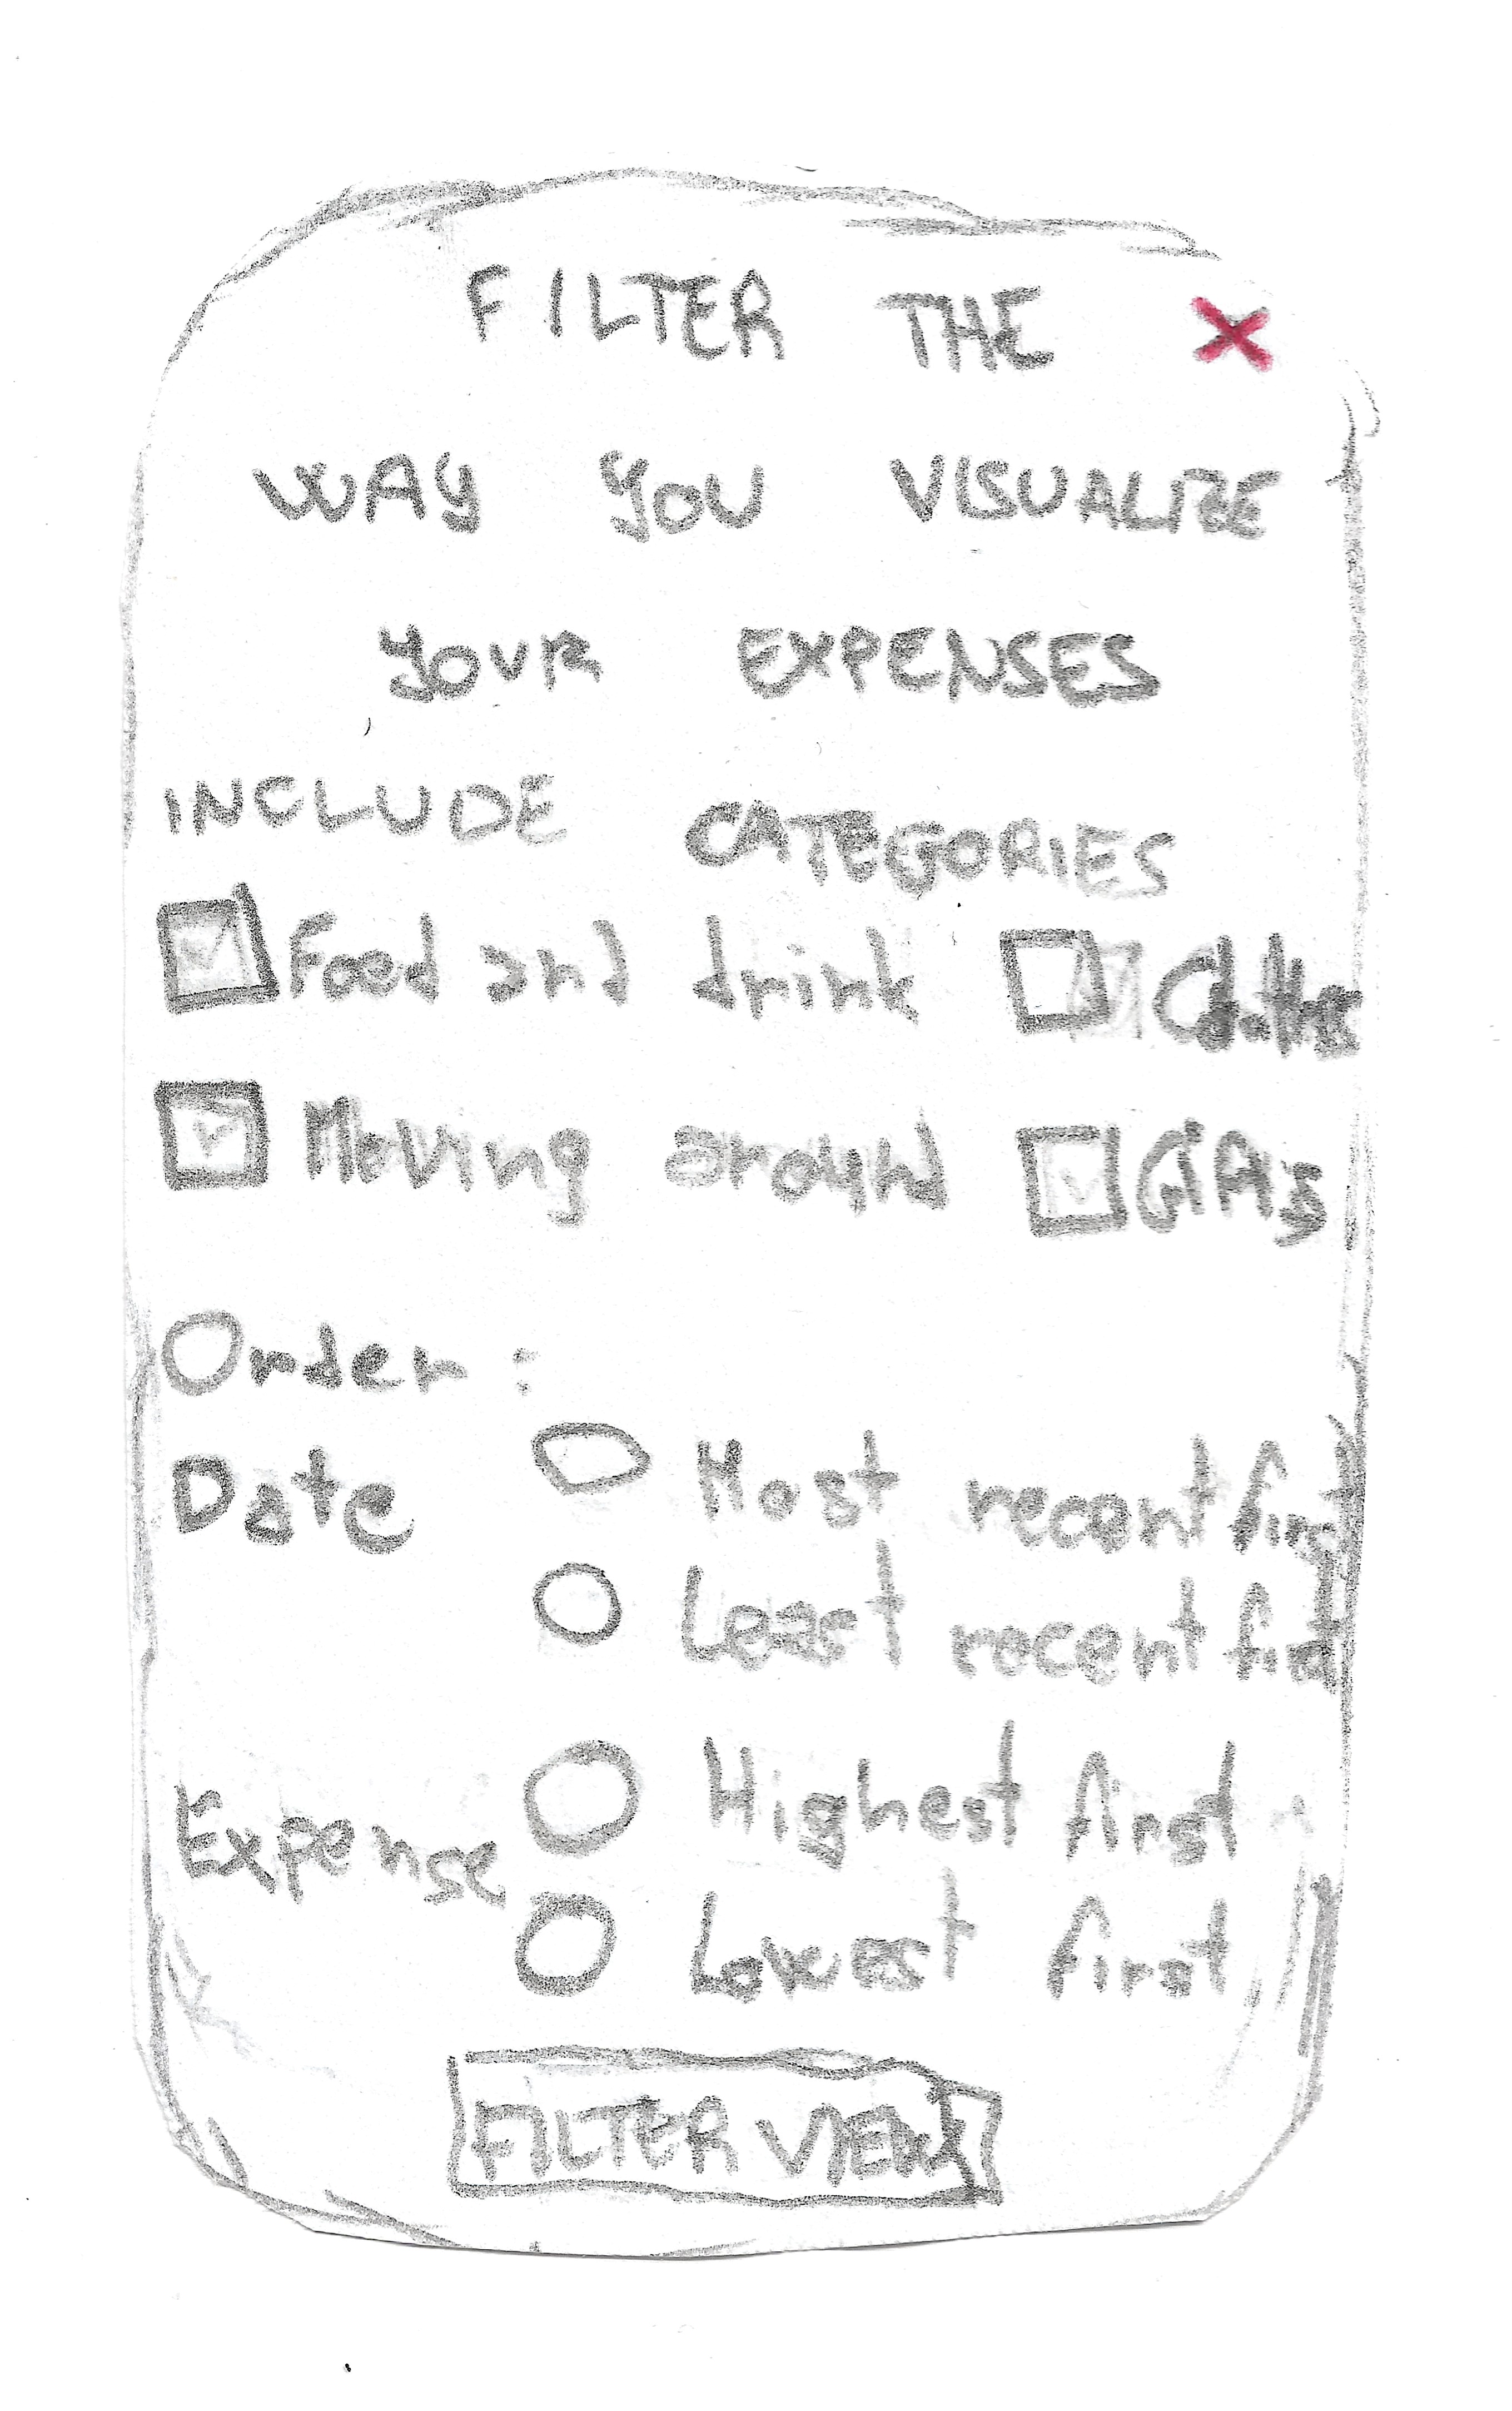 FILTER THE
WAY YOU VISUALIZE
YOUR EXPENSES
INCLUDE CATEGORIES
Food and drink Clothes
Moving around Gifts
Order :
Date Most recent first
Least recent first
Expense Highest first
Lowest first
FILTER VIEW